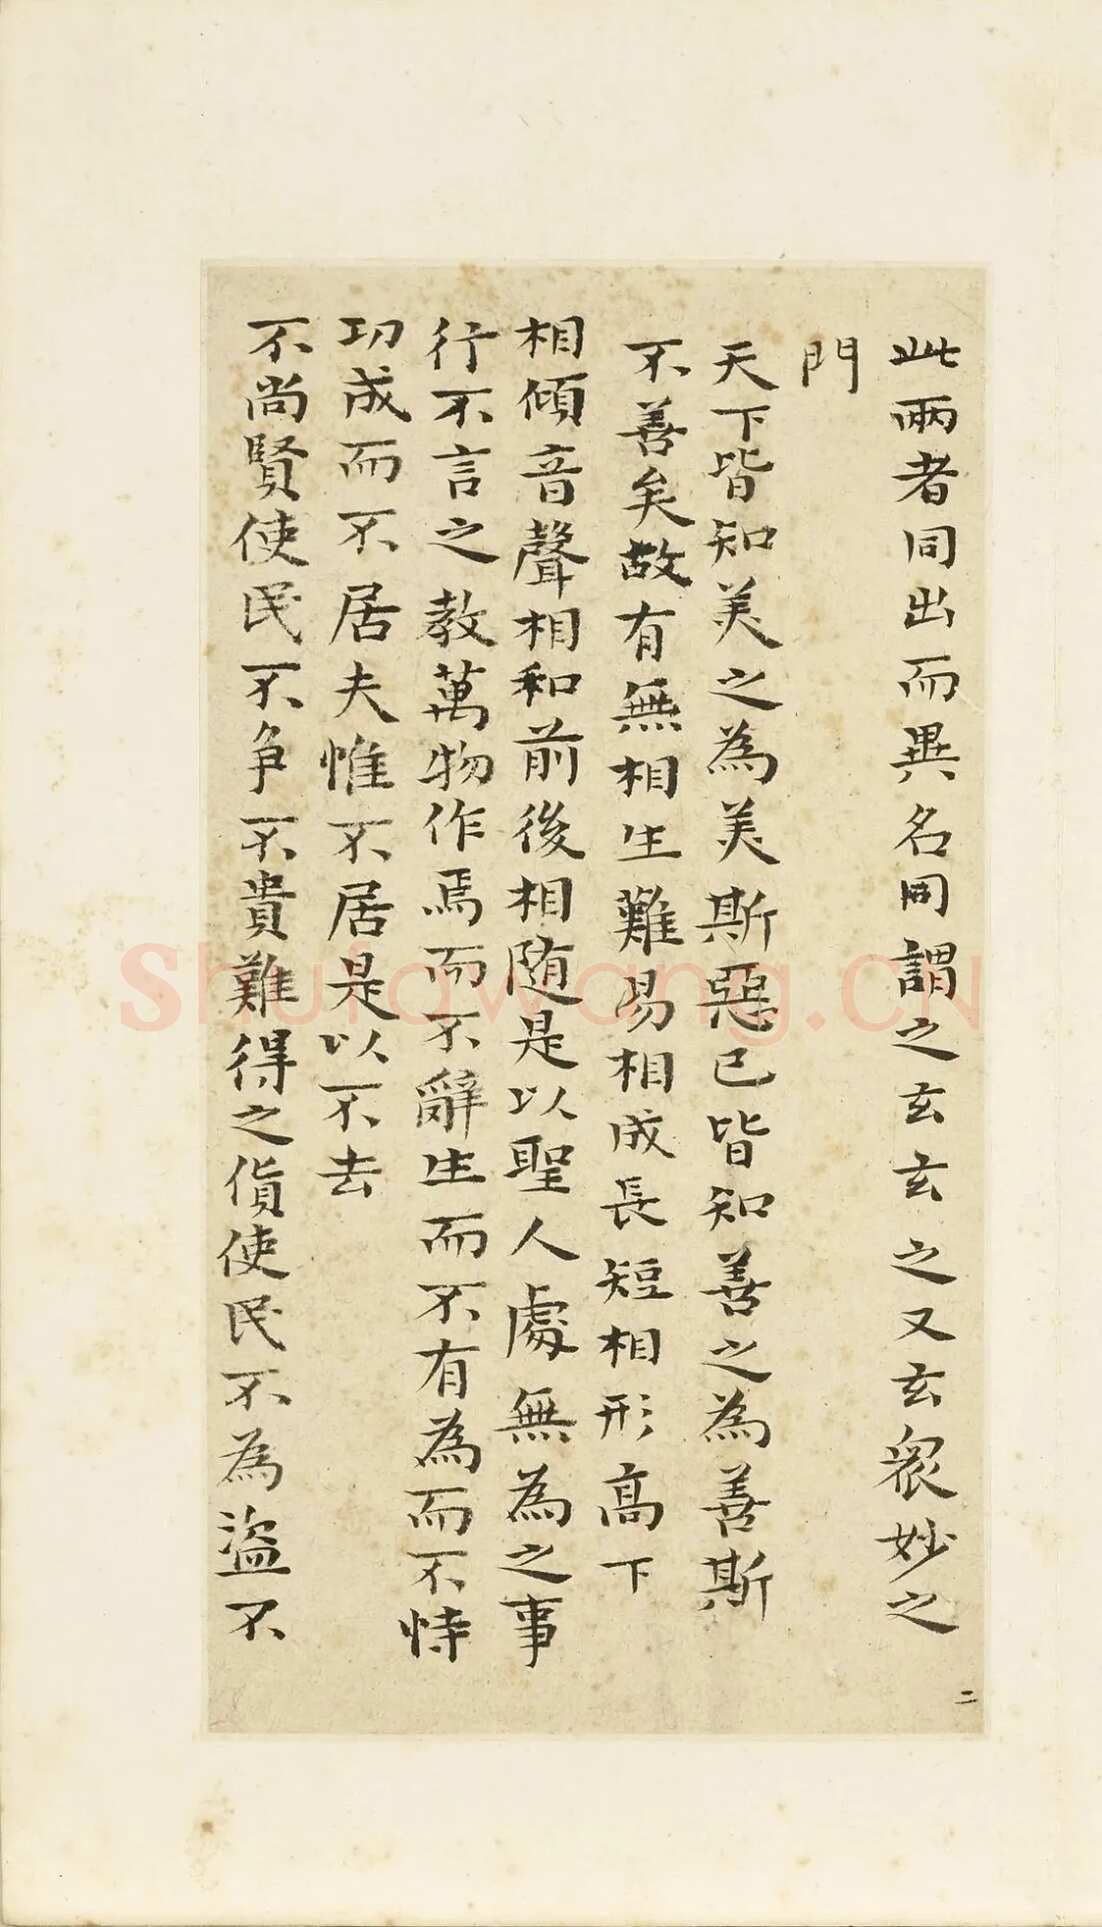 此兩者同出而異名同謂之玄玄之又玄衆妙之
門
天下皆知美之為美斯惡已皆知善之為善斯
不善矣故有無相生難易相成長短相形高下
相傾音聲相和前後相随是以聖人處無為之事
行不言之教萬物作焉而不辭生而不有為而不恃
功成而不居夫惟不居是以不去
不尚賢使民不爭不貴難得之貨使民不為盜不
二
Shufawang.CN